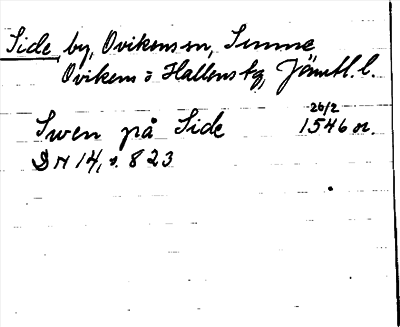 Side, by, Ovikens sn, Sunne,
Ovikens o Hallens tg, Jämtl. l.
26/2
Swen på Side 1546 or.
DN 14, s. 823